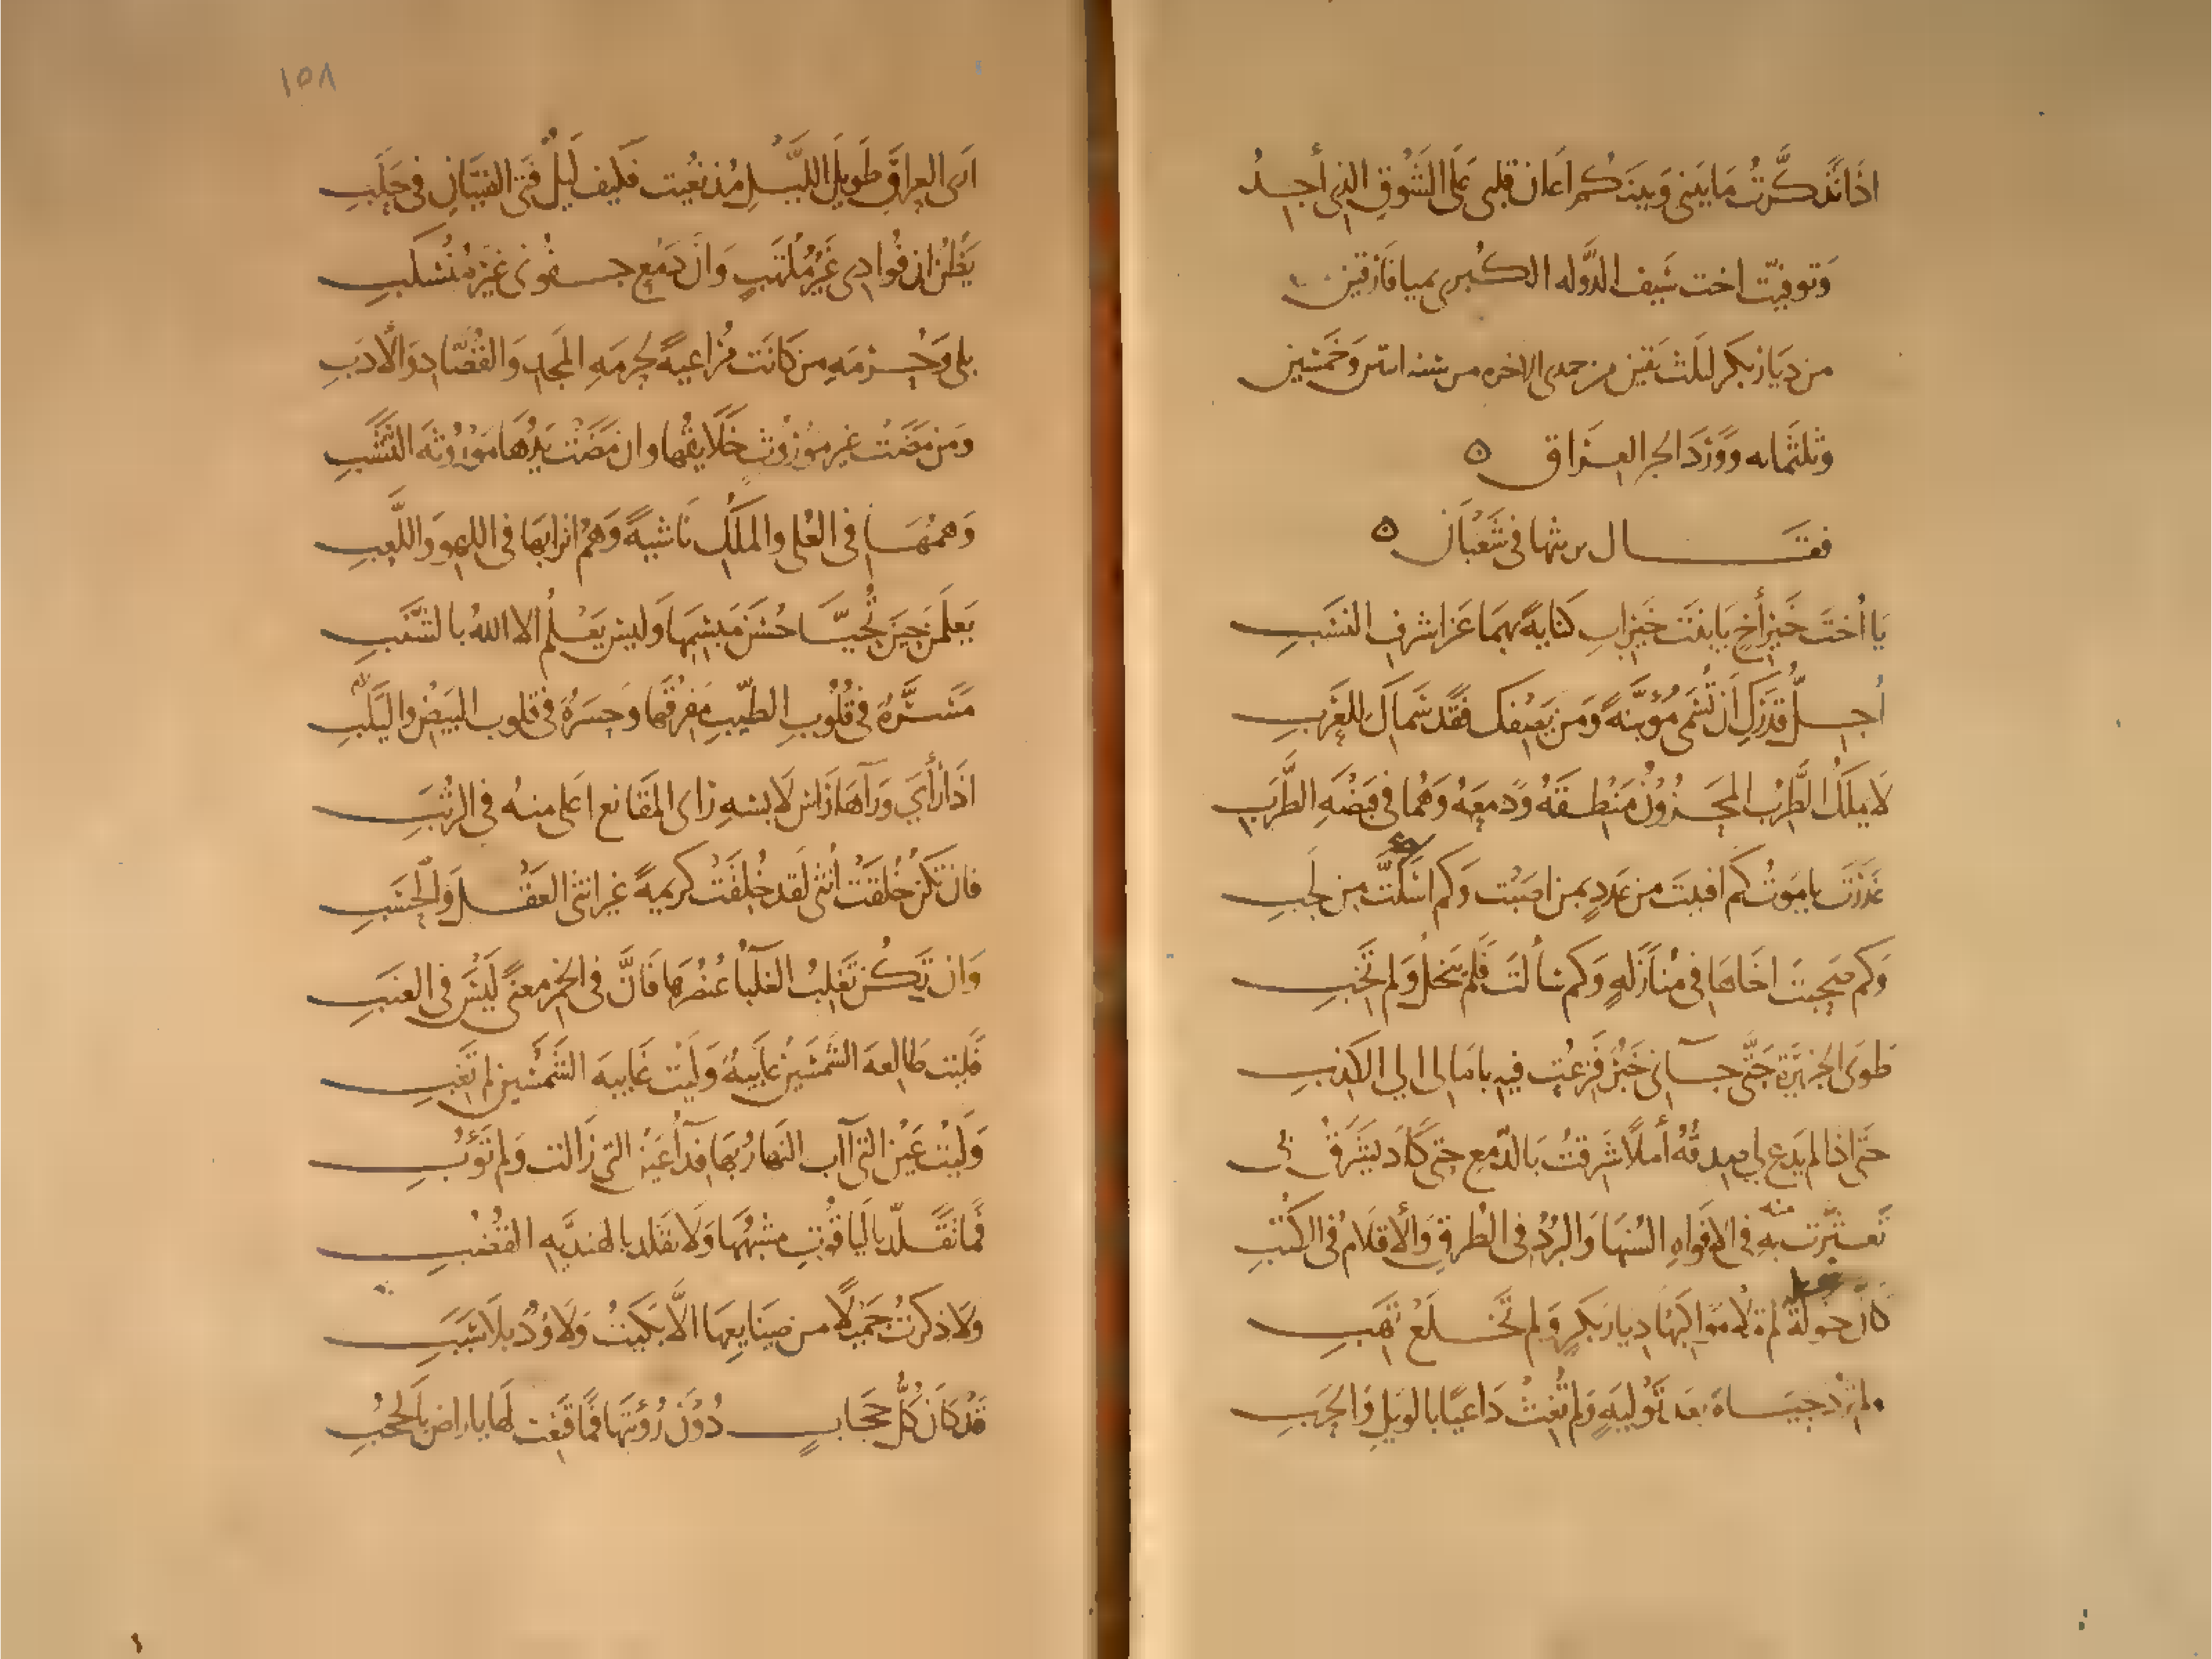 اذَا تَذَكَّرتُ مَا بَيني وَبينَكُم اَعَانَ قلبى عَلَى الشَوُقِ الذِى أجِدُ
وَتوفيّت اخت سَيف الدَّوله الكُبرى بميافارقين
من ديَار بَكر لثلث بَقين من جمدى الاخره من سنه اثنتين وَخَمسين
وثلثمَائه وَوَرَدَ الخبر العِرَاق ه
فقَال يرثيها فى شَعبَانَ ه
يَا اُختَ خَيرِ أخٍ يَا بِنتَ خَيرِ ابِ كنَايَةً بهمَا عَن اشرفِ النسَبِ
أُجِلُّ قَدرَكِ اَن تُسَمى مُؤبَّنَةً وَمَن يَصِفكِ فَقَد سَمَّاكِ للعَرَبِ
لا يملكُ الطَّرِبُ المَحزُونُ مَنطِقَهُ وَدمعَهُ وَهُمَا فى قبضَهِ الطَّرَبِ
غدَرْتَ يا مَوتُ كَم افنيتَ من عَددٍ بمن اصَبْت وَكم اسكَتَّ مِن لَجبِ
وَكم صَحِبتَ اخَاهَا فى مُنَازَلَهٍ وَكم سَألتَ فَلَم يَبخل وَلم تَخِبِ
طوَى الجَزيرَةَ حَتَّى جَآنى خَبَرٌ فَزِعتُ فيهِ بامَالى الي الكَذبِ
حَتَّى اذا لم يَدَع لى صِدقُهُ أملًا شَرِقتُ بَالدَّمعِ حتى كَادَ يَشرَقُ بى
تَعثَّرت بهِ منه فى الافوَاهِ السُنُهَا وَالبُرْدُ فى الطُرقِ وَالأقلَامُ فى الكُتبِ
كانَ خولَةَ لم تملأ مَوَاكبُهَا ديارَ بَكرٍ وَلم تَخلَع وَلم تَهَبِ
ولم تَرُدَّ حَيَاةً بَعدَ تَوْليَهٍ وَلم تُغِثْ دَاعيًا بالوَيلِ وَالحَرَبِ
١٥٨
اَرَى العِراقَ طَويلَ اللَّيلِ مُذ نُعِيت فَكيف لَيلُ فَتى الفتيَانِ فى حَلَبِ
يَظُنُّ ان فُوادِى غَيرُ مُلتَهبٍ وَانَّ دَمع جُفُونى غيرُ مُنسَكبِ
بلى وَحُرمَهِ من كَانَت مُرَاعيةً لحرمَهِ المَجدِ وَالقُصَّادِ وَالأدَبِ
ومَن مَضَت غير مَورُوثٍ خَلَايقُها وان مَضَت يَدُهَا مَورُوثَهَ النَّشَبِ
وَهَمُّهَا فى العُلى والمُلكِ نَاشيَةً وَهَمُّ اترابهَا فى اللهوِ وَاللَّعبِ
يَعلَمنَ حِينَ تُحيَّا حُسنَ مَبسِمهَا وَليسَ يَعلمُ الا اللهُ بالشَنَبِ
مَسَرَّةٌ فى قُلوبِ الطّيبِ مَفرِقُهَا وَحَسرَةٌ فى قلوب البَيضِ واليَلَبِ
اذَا رَأي وَرَآهَا رَاسَ لَابسِهِ رَاى المَقَانع اَعلى منهُ فى الرُتَبِ
فان تكن خُلقَت اُنثى لَقد خُلقَت كريمةً غير انثى العَقلِ وَالحَسَبِ
وَان تَكُن تَغلِبُ الغَلبآُ عُنصُرَها فَانَّ فى الخَمر معنىً لَيسَ فى العنَبِ
فَليت طَالعهَ الشَمسَينِ غَايبَهٌ وَلَيت غَايبهَ الشَمسَين لم تَغبِ
وَلَيتَ عَينَ التى آب النَهارُ بهَا فدَآُ عَينِ التى زَالت وَلم تَؤبِ
فَمَا تَقَلَّد باليَاقُوتِ مشبهُهَا وَلَا تقَلد بالهنديَّهِ القُضُبِ
وَلا ذكَرتُ جَميلًا من صنَايعهَا الَّا بَكيتُ وَلَا وُدٌّ بلَا سَبَبِ
قَد كانَ كُلُّ حجَابٍ دُونَ رُؤيَتهَا فَمَا قَنِعت لَهَا يا ارضُ بالحُجُبِ